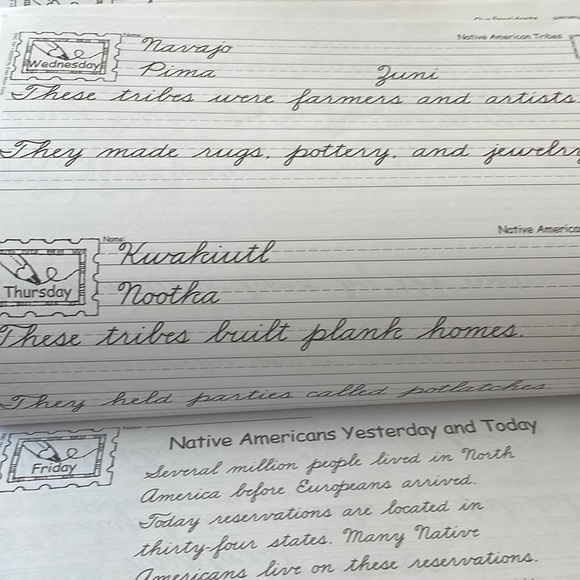 Name:
Native American Tribes
Wednesday
Navajo
Pima Zuni
These tribes were farmers and artists.
They made rugs, pottery, and jewelry
Name:
Native America
Thursday
Kwakiutl
Nootka
These tribes built plank homes.
They held parties called potlatches
Friday
Native Americans Yesterday and Today
Several million people lived in North
America before Europeans arrived.
Today reservations are located in
thirty-four states. Many Native
Americans live on these reservations.